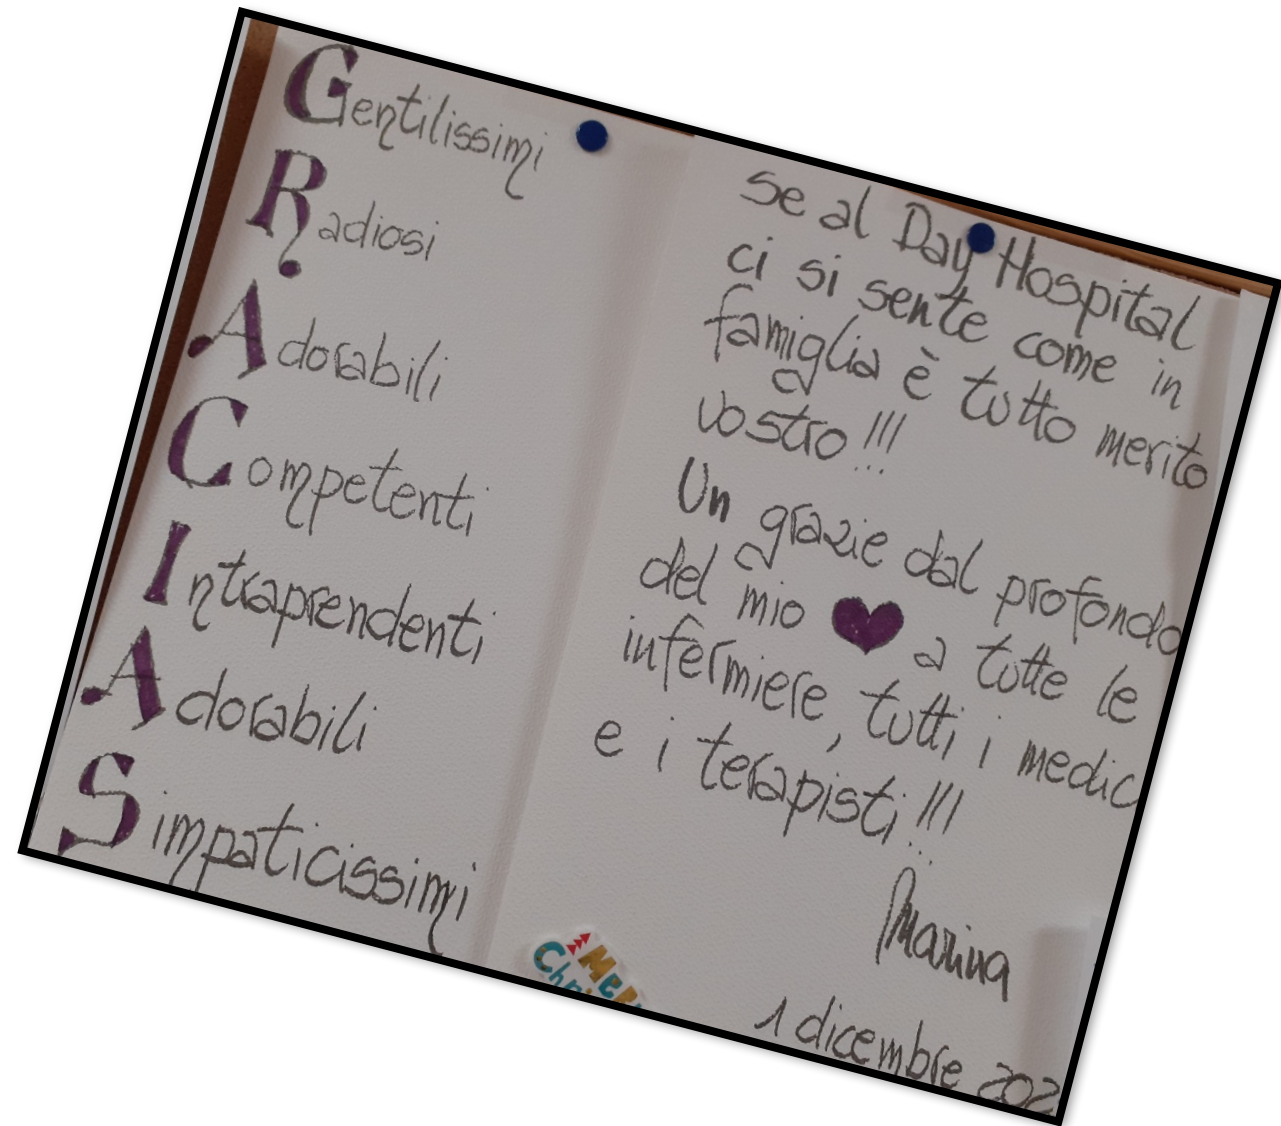 Gentilissimi
Radiosi
Adorabili
Competenti
Intraprendenti
Adorabili
Simpaticissimi
Se al Day Hospital
ci si sente come in
famiglia è tutto merito
vostro!!!
Un grazie dal profondo
del mio ♥ a tutte le
infermiere, tutti i medic
e i terapisti!!!
Marina
1 dicembre 202